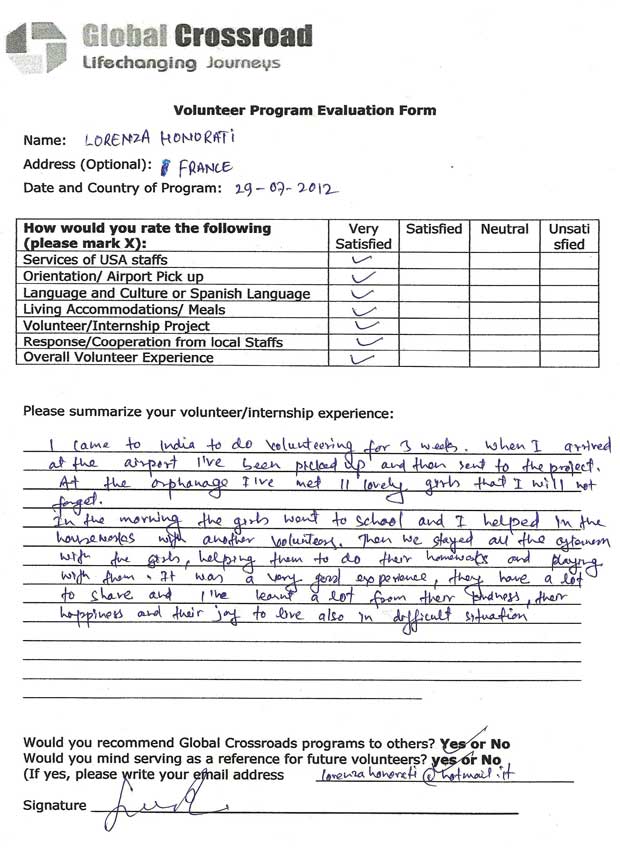 Global Crossroad
Lifechanging Journeys
Volunteer Program Evaluation Form
Name: LORENZA HONORATI
Address (Optional): FRANCE
Date and Country of Program: 29-07-2012
How would you rate the following Very Satisfied Neutral Unsati
(please mark X): Satisfied sfied
Services of USA staffs ✓
Orientation/ Airport Pick up ✓
Language and Culture or Spanish Language ✓
Living Accommodations/ Meals ✓
Volunteer/Internship Project ✓
Response/Cooperation from local Staffs ✓
Overall Volunteer Experience ✓
Please summarize your volunteer/internship experience:
I came to India to do volunteering for 3 weeks. When I arrived
at the airport I've been picked up and then sent to the project.
At the orphanage I've met 11 lovely girls that I will not
forget.
In the morning the girls went to school and I helped in the
houseworks with another volunteer. Then we stayed all the afternoon
with the girls, helping them to do their homeworks and playing
with them. It was a very good experience, they have a lot
to share and I've learnt a lot from their kindness, their
happiness and their joy to live also in difficult situation
Would you recommend Global Crossroads programs to others? Yes or No
Would you mind serving as a reference for future volunteers? yes or No
(If yes, please write your email address lorenzahonorati@hotmail.it
Signature